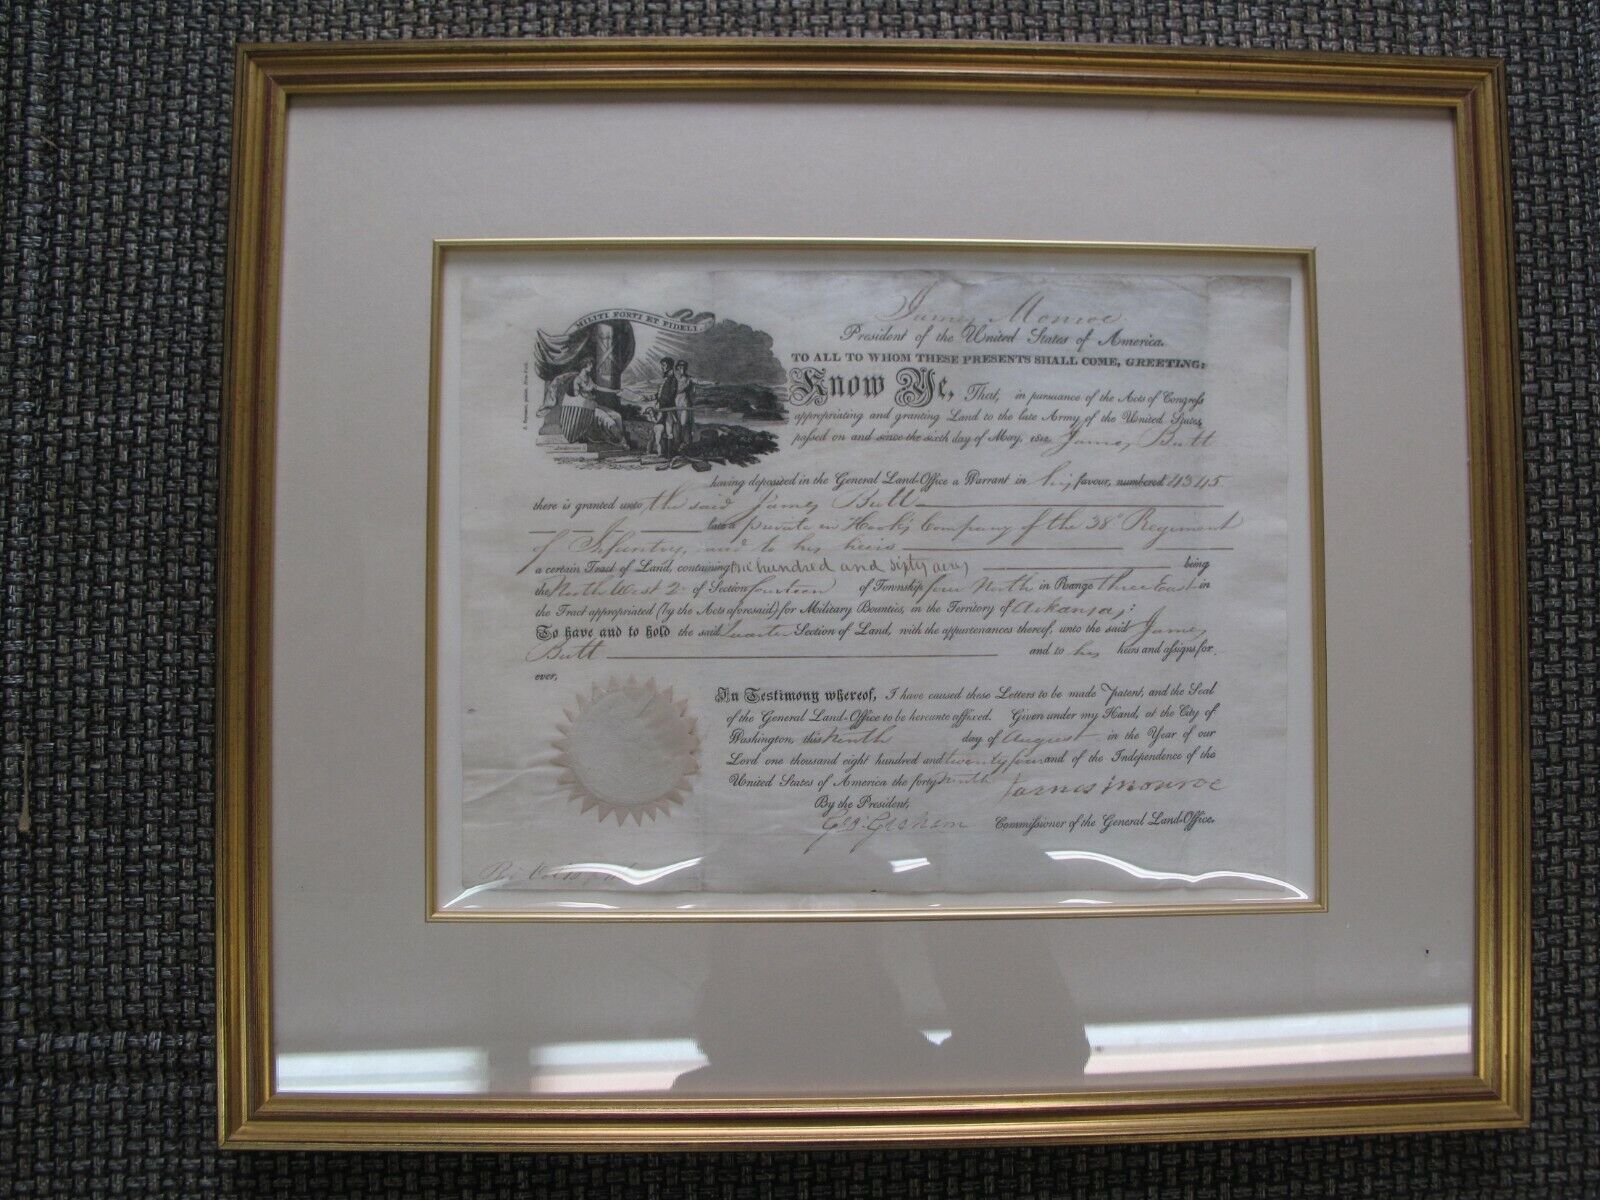 MILITI FORTI ET FIDELI.
James Monroe
President of the United States of America.
TO ALL TO WHOM THESE PRESENTS SHALL COME, GREETING:
Know Ye, That, in pursuance of the Acts of Congress
appropriating and granting Land to the late Army of the United States,
passed on and since the sixth day of May, 1812, James Butt
having deposited in the General Land-Office a Warrant in his favour, numbered 4345
there is granted unto the said James Butt
late a private in Hook's Company of the 38th Regiment
of Infantry, and to his heirs
a certain Tract of Land, containing one hundred and sixty acres being
the North West Qr of Section fourteen of Township four North in Range three East in
the Tract appropriated (by the Acts aforesaid) for Military Bounties, in the Territory of Arkansas:
To have and to hold the said Quarter Section of Land, with the appurtenances thereof, unto the said James
Butt and to his heirs and assigns for
ever,
In Testimony whereof, I have caused these Letters to be made Patent, and the Seal
of the General Land-Office to be hereunto affixed. Given under my Hand, at the City of
Washington, this Ninth day of August in the Year of our
Lord one thousand eight hundred and twenty four and of the Independence of the
United States of America the forty ninth
James Monroe
By the President,
Geo: Graham Commissioner of the General Land-Office.